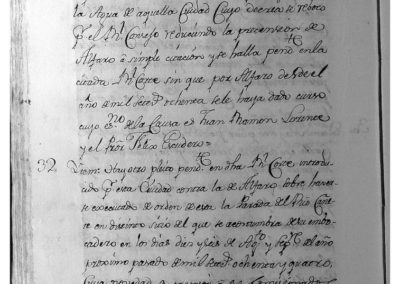 la Agua de aquella Ciudad Cuyo decreto se revoco
pr el Rl Consejo reduciendo la precension de
Alfaro à simple citacion y se halla pende en la
citada Rl Corte sin que por Alfaro desde el
año de mil setecs ochenta se le haya dado curso
cuyo esno de la Causa es Juan Ramon Lorente
y el Pror Felix Escudero=
32 Item: Hay otro pleito pende en dha Rl Corte introdu
cido pr esta Ciudad contra la de Alfaro sobre haver
se executado de orden de esta la Parada del Rio
en distinto sitio del que se acostumbra de su embo
cadero en los dias diez y seis de Agto y Sepe del año
proximo pasado de mil setecs ochenta y quatro,
Cuya novedad